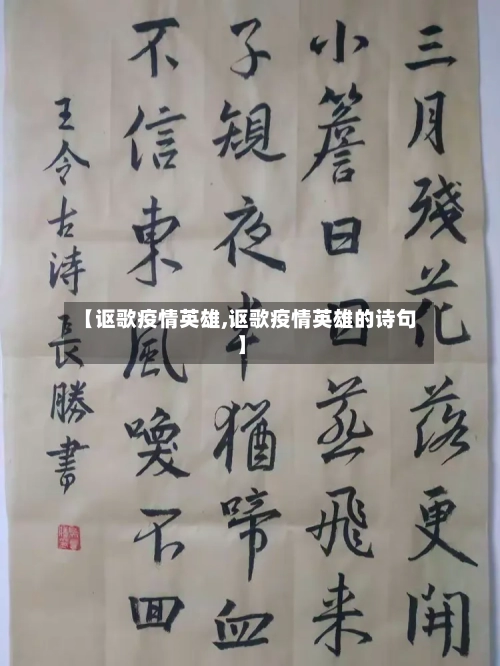 三月殘花落更開
小簷日日燕飛来
子規夜半猶啼血
不信東風喚不回
王令古诗 長勝書
【讴歌疫情英雄,讴歌疫情英雄的诗句
】